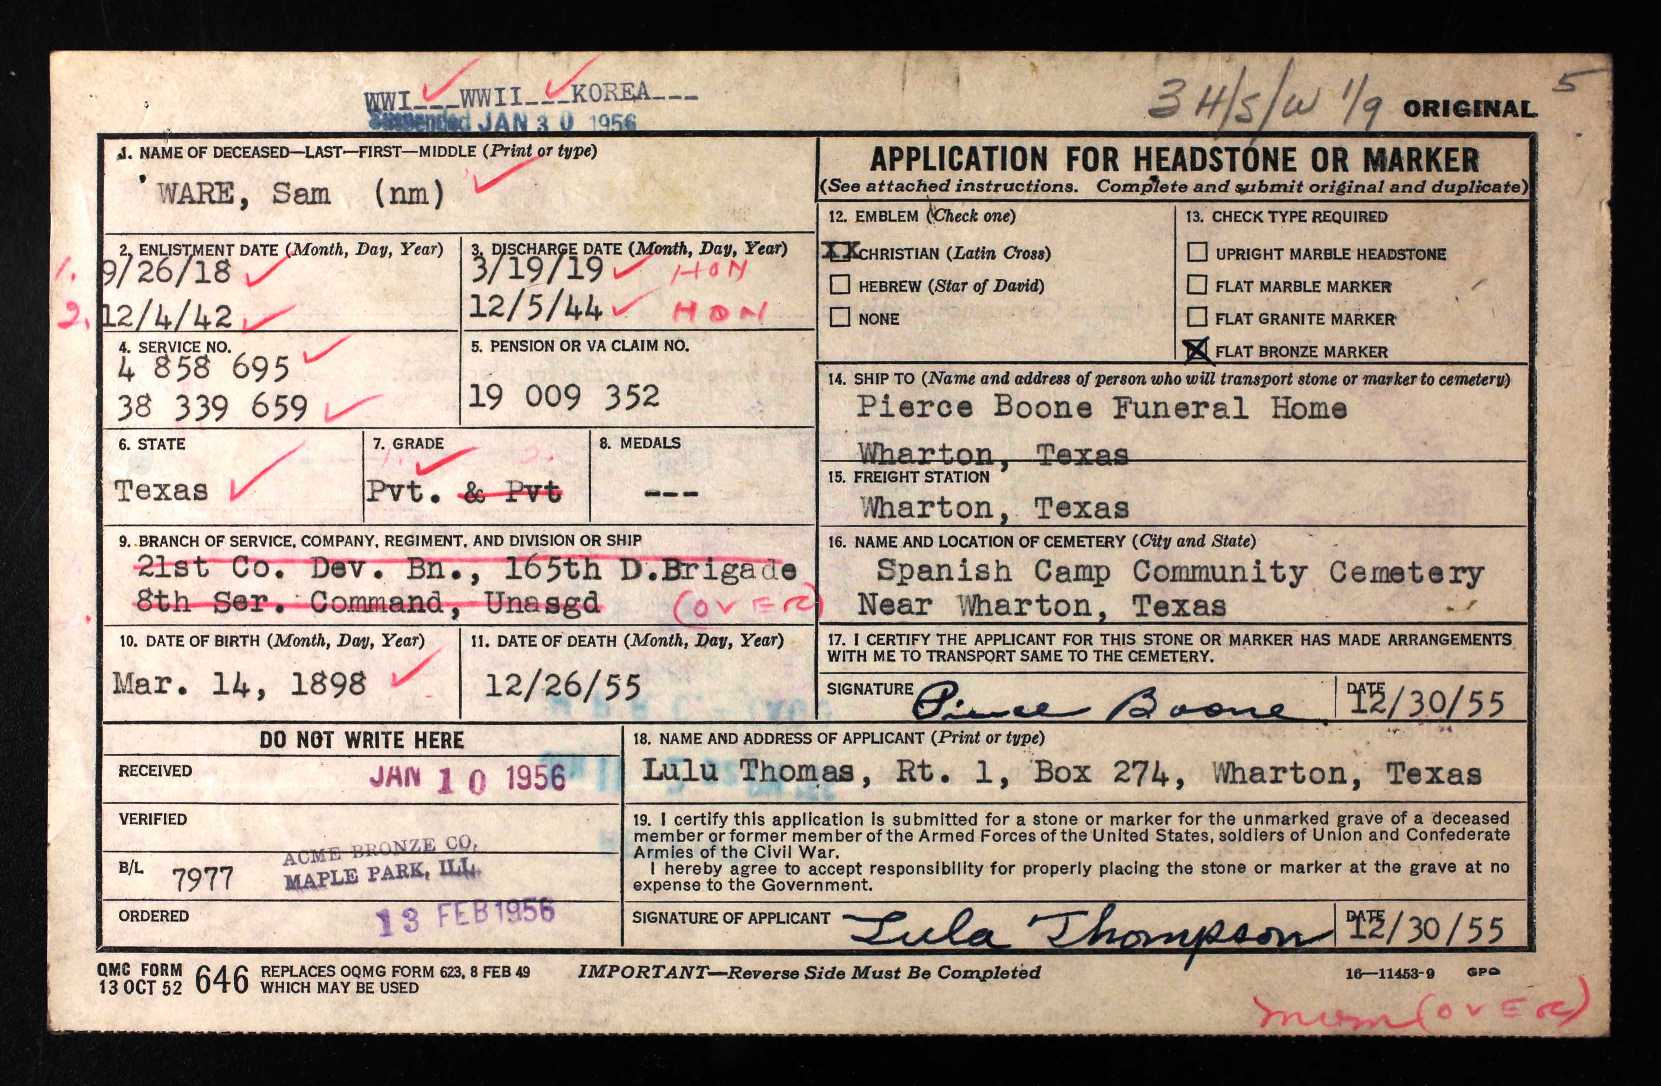 WWI___WWII___KOREA___
Suspended JAN 30 1956
3 H/S/W 1/9 ORIGINAL 5
1. NAME OF DECEASED—LAST—FIRST—MIDDLE (Print or type)
WARE, Sam (nm)
2. ENLISTMENT DATE (Month, Day, Year)
1. 9/26/18
2. 12/4/42
3. DISCHARGE DATE (Month, Day, Year)
3/19/19 HON
12/5/44 HON
4. SERVICE NO.
4 858 695
38 339 659
5. PENSION OR VA CLAIM NO.
19 009 352
6. STATE
Texas
7. GRADE
Pvt. & Pvt
8. MEDALS
---
9. BRANCH OF SERVICE, COMPANY, REGIMENT, AND DIVISION OR SHIP
21st Co. Dev. Bn., 165th D.Brigade
8th Ser. Command, Unasgd (OVER)
10. DATE OF BIRTH (Month, Day, Year)
Mar. 14, 1898
11. DATE OF DEATH (Month, Day, Year)
12/26/55
APPLICATION FOR HEADSTONE OR MARKER
(See attached instructions. Complete and submit original and duplicate)
12. EMBLEM (Check one)
XX CHRISTIAN (Latin Cross)
HEBREW (Star of David)
NONE
13. CHECK TYPE REQUIRED
UPRIGHT MARBLE HEADSTONE
FLAT MARBLE MARKER
FLAT GRANITE MARKER
X FLAT BRONZE MARKER
14. SHIP TO (Name and address of person who will transport stone or marker to cemetery)
Pierce Boone Funeral Home
Wharton, Texas
15. FREIGHT STATION
Wharton, Texas
16. NAME AND LOCATION OF CEMETERY (City and State)
Spanish Camp Community Cemetery
Near Wharton, Texas
17. I CERTIFY THE APPLICANT FOR THIS STONE OR MARKER HAS MADE ARRANGEMENTS
WITH ME TO TRANSPORT SAME TO THE CEMETERY.
SIGNATURE Pierce Boone DATE 12/30/55
DO NOT WRITE HERE
RECEIVED JAN 10 1956
VERIFIED
B/L 7977 ACME BRONZE CO.
MAPLE PARK, ILL.
ORDERED 13 FEB 1956
18. NAME AND ADDRESS OF APPLICANT (Print or type)
Lulu Thomas, Rt. 1, Box 274, Wharton, Texas
19. I certify this application is submitted for a stone or marker for the unmarked grave of a deceased
member or former member of the Armed Forces of the United States, soldiers of Union and Confederate
Armies of the Civil War.
I hereby agree to accept responsibility for properly placing the stone or marker at the grave at no
expense to the Government.
SIGNATURE OF APPLICANT Lula Thompson DATE 12/30/55
QMC FORM 646 REPLACES OQMG FORM 623, 8 FEB 49
13 OCT 52 WHICH MAY BE USED
IMPORTANT—Reverse Side Must Be Completed
16—11453-9 GPO
(OVER)